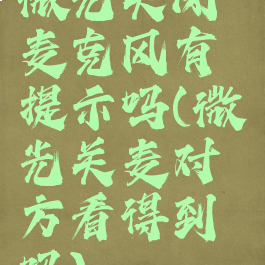 微光关闭
麦克风有
提示吗(微
光关麦对
方看得到
吗)